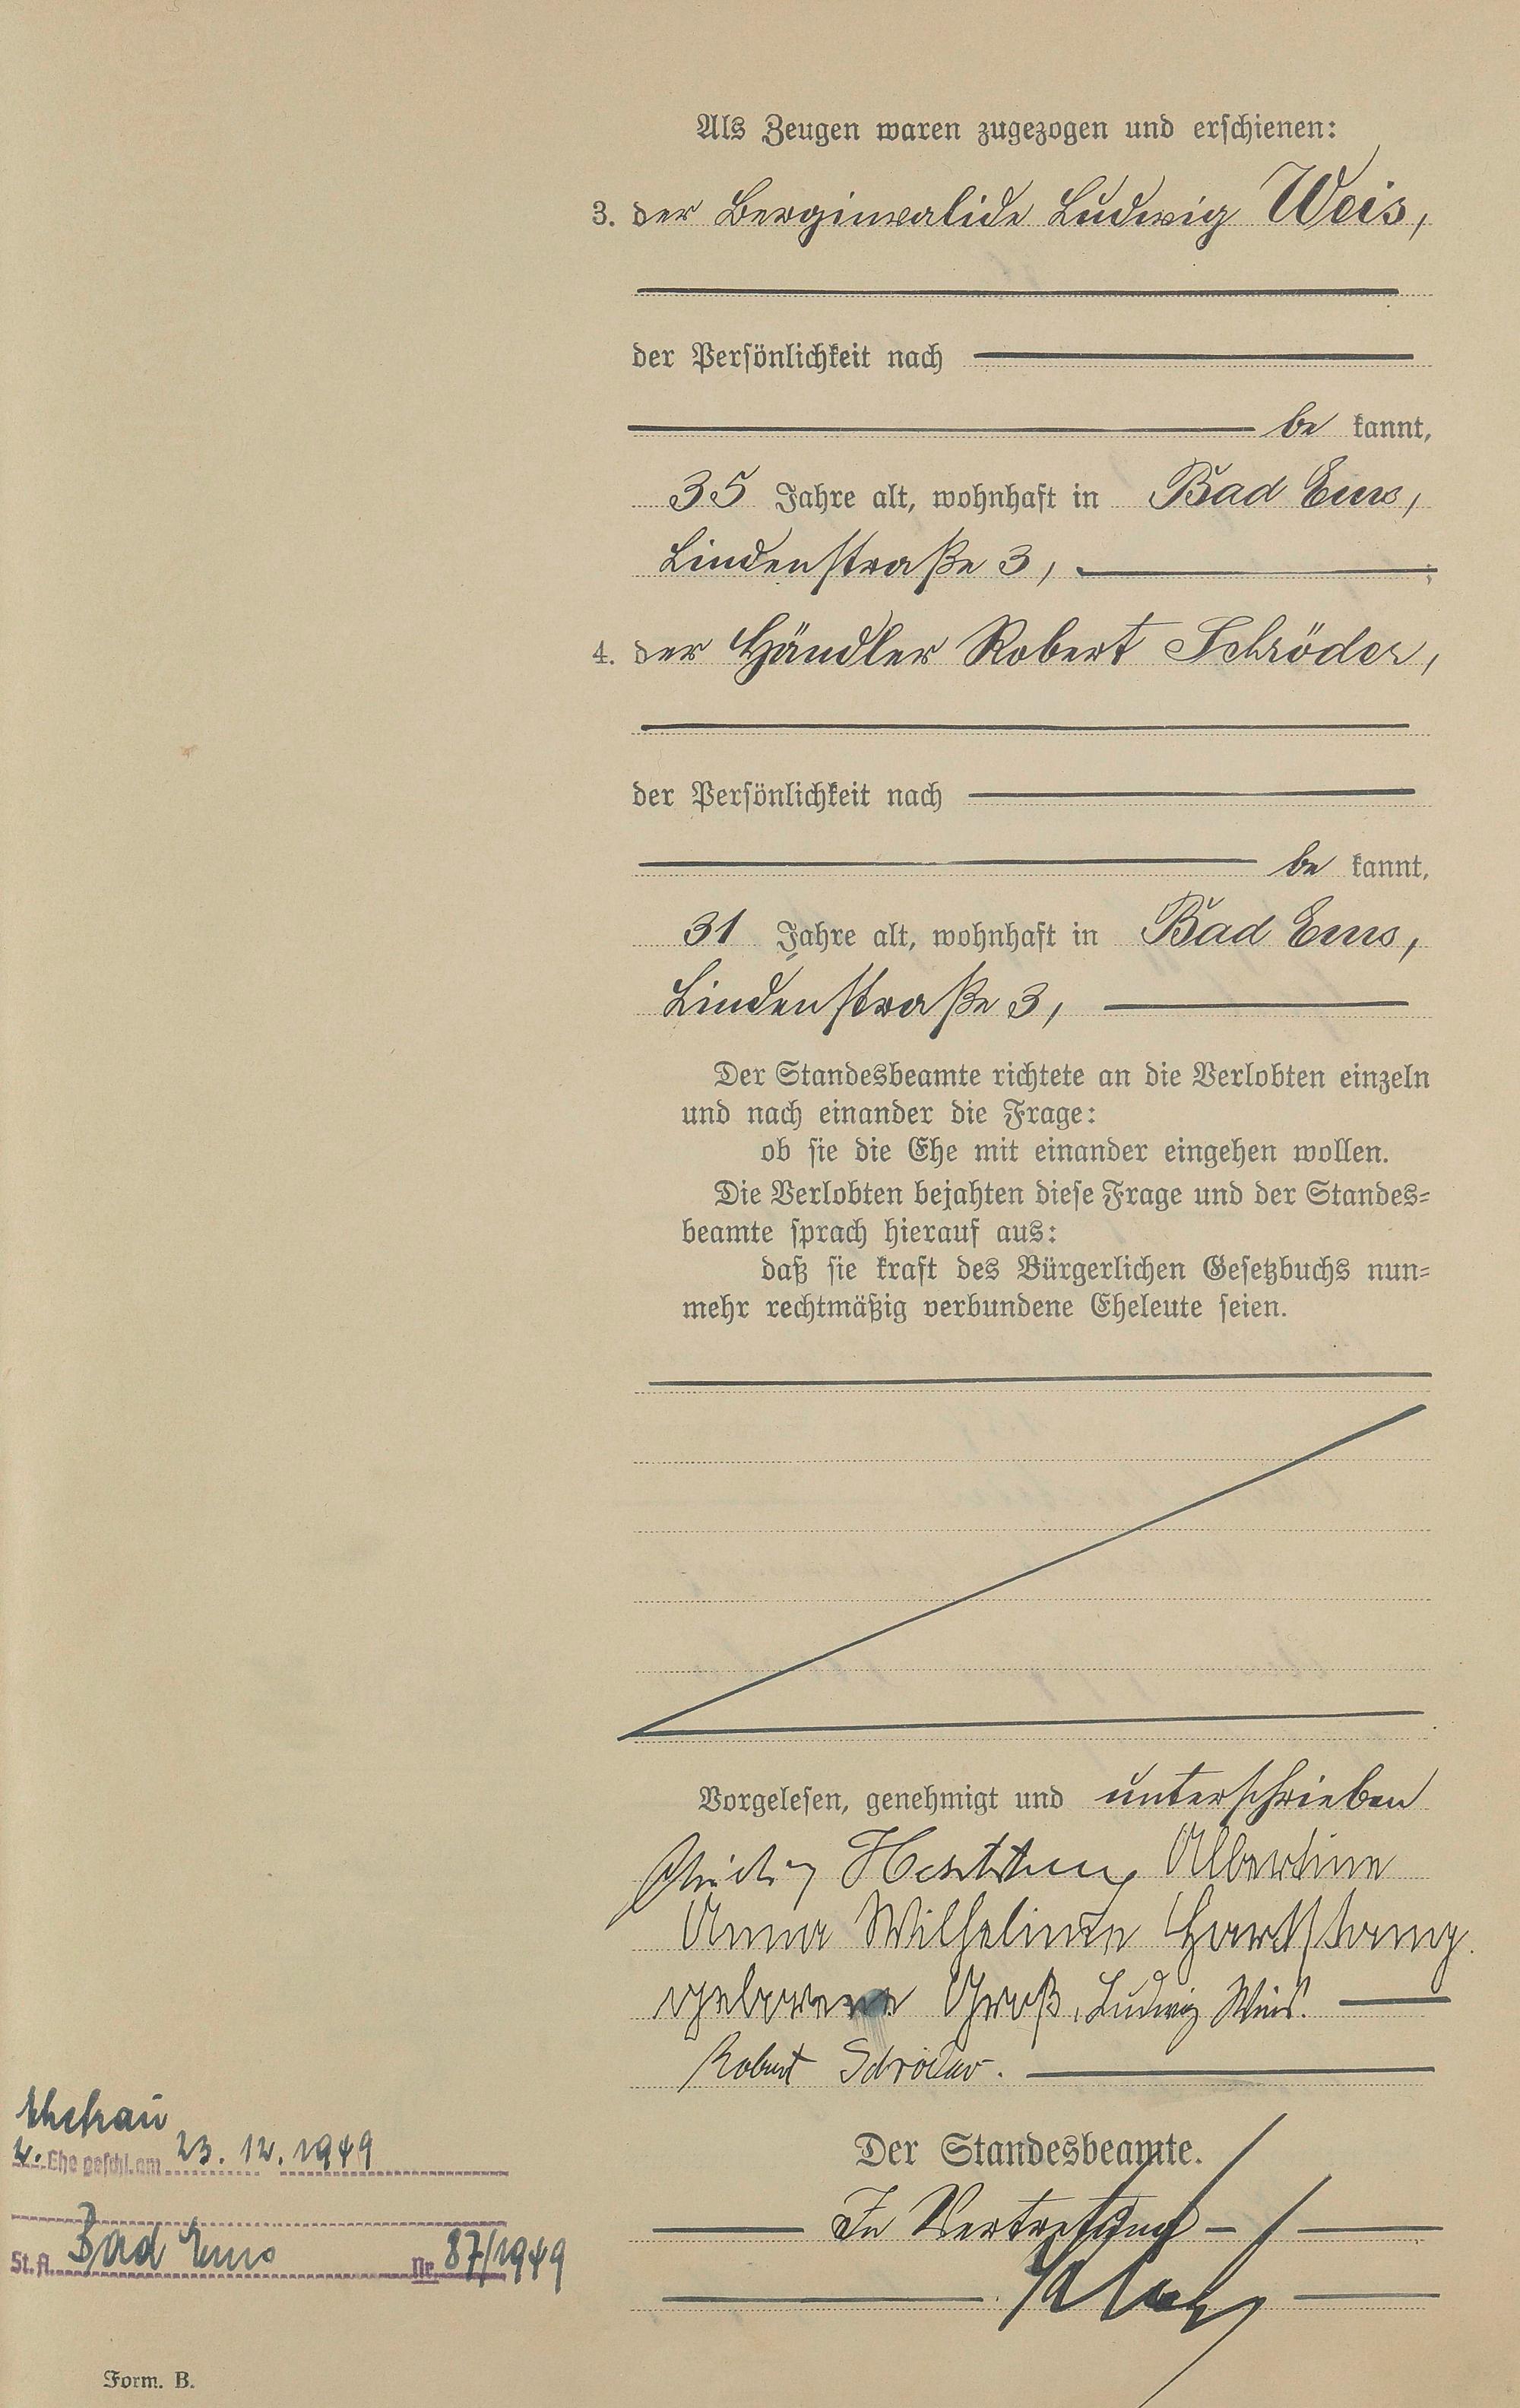 Als Zeugen waren zugezogen und erschienen:
3. der Berginvalide Ludwig Weis,
der Persönlichkeit nach
be kannt,
35 Jahre alt, wohnhaft in Bad Ems,
Lindenstraße 3,
4. der Händler Robert Schröder,
der Persönlichkeit nach
be kannt,
31 Jahre alt, wohnhaft in Bad Ems,
Lindenstraße 3,
Der Standesbeamte richtete an die Verlobten einzeln
und nach einander die Frage:
ob sie die Ehe mit einander eingehen wollen.
Die Verlobten bejahten diese Frage und der Standes=
beamte sprach hierauf aus:
daß sie kraft des Bürgerlichen Gesetzbuchs nun=
mehr rechtmäßig verbundene Eheleute seien.
Vorgelesen, genehmigt und unterschrieben
Albertine
Anna Wilhelmine Hartstang
geborene Groß, Ludwig Weis.
Robert Schröder.
Der Standesbeamte.
In Vertretung
Ehefrau
2. Ehe geschl. am 23. 12. 1949
St. A. Bad Ems Nr. 87/1949
Form. B.